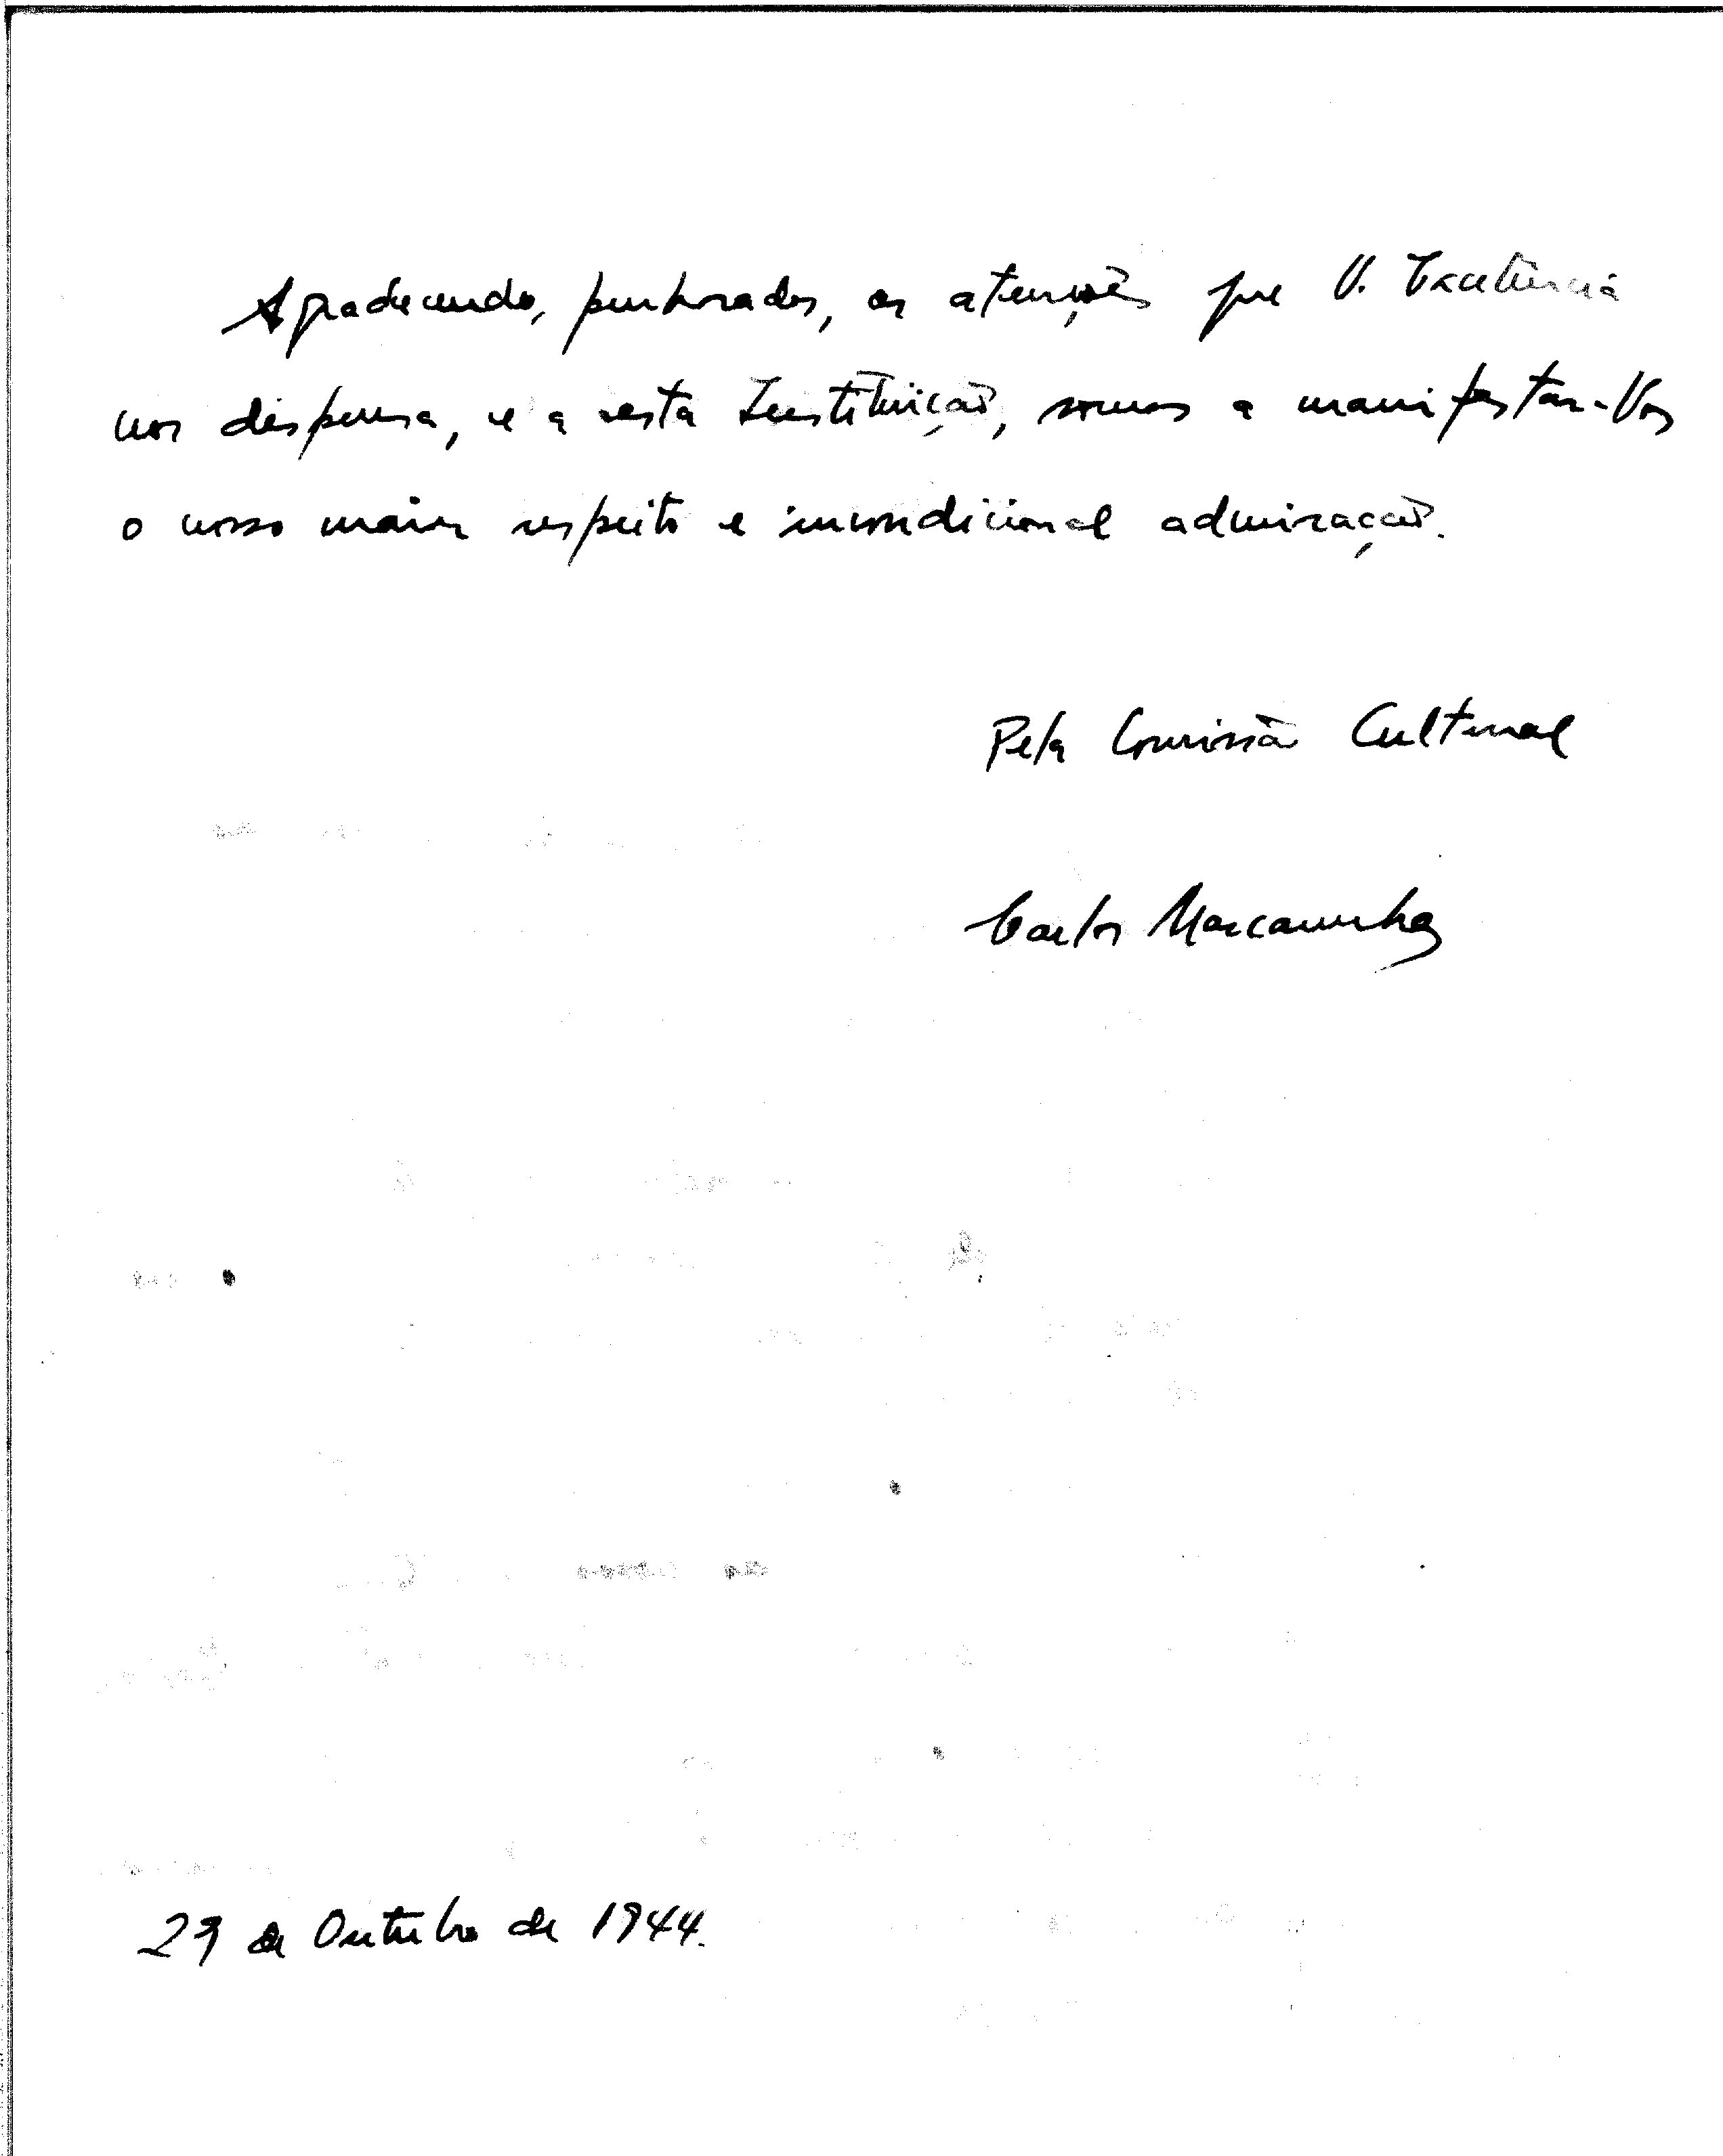 Agradecendo, penhorados, as atenções que V. Excelência
nos dispensa, e a esta Instituição, somos a manifestar-Vos
o nosso maior respeito e incondicional admiração.
Pela Comissão Cultural
Carlos Marcaunhas
29 de Outubro de 1944.